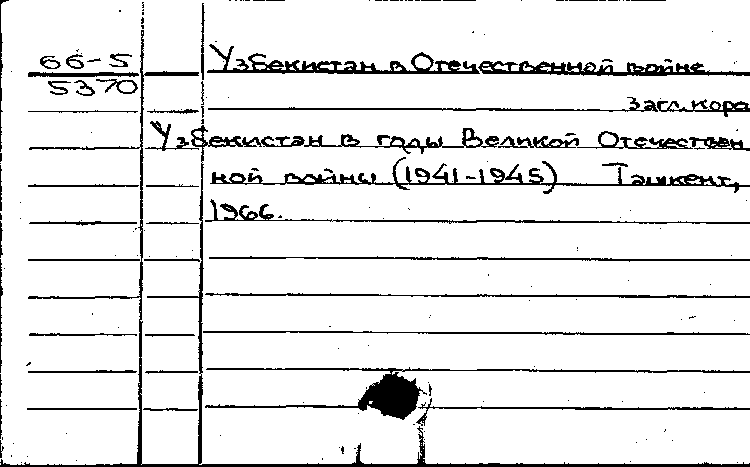 66-5
5370
Узбекистан в Отечественной войне
Загл. кора
Узбекистан в годы Великой Отечествен
ной войны (1941-1945) Ташкент,
1966.